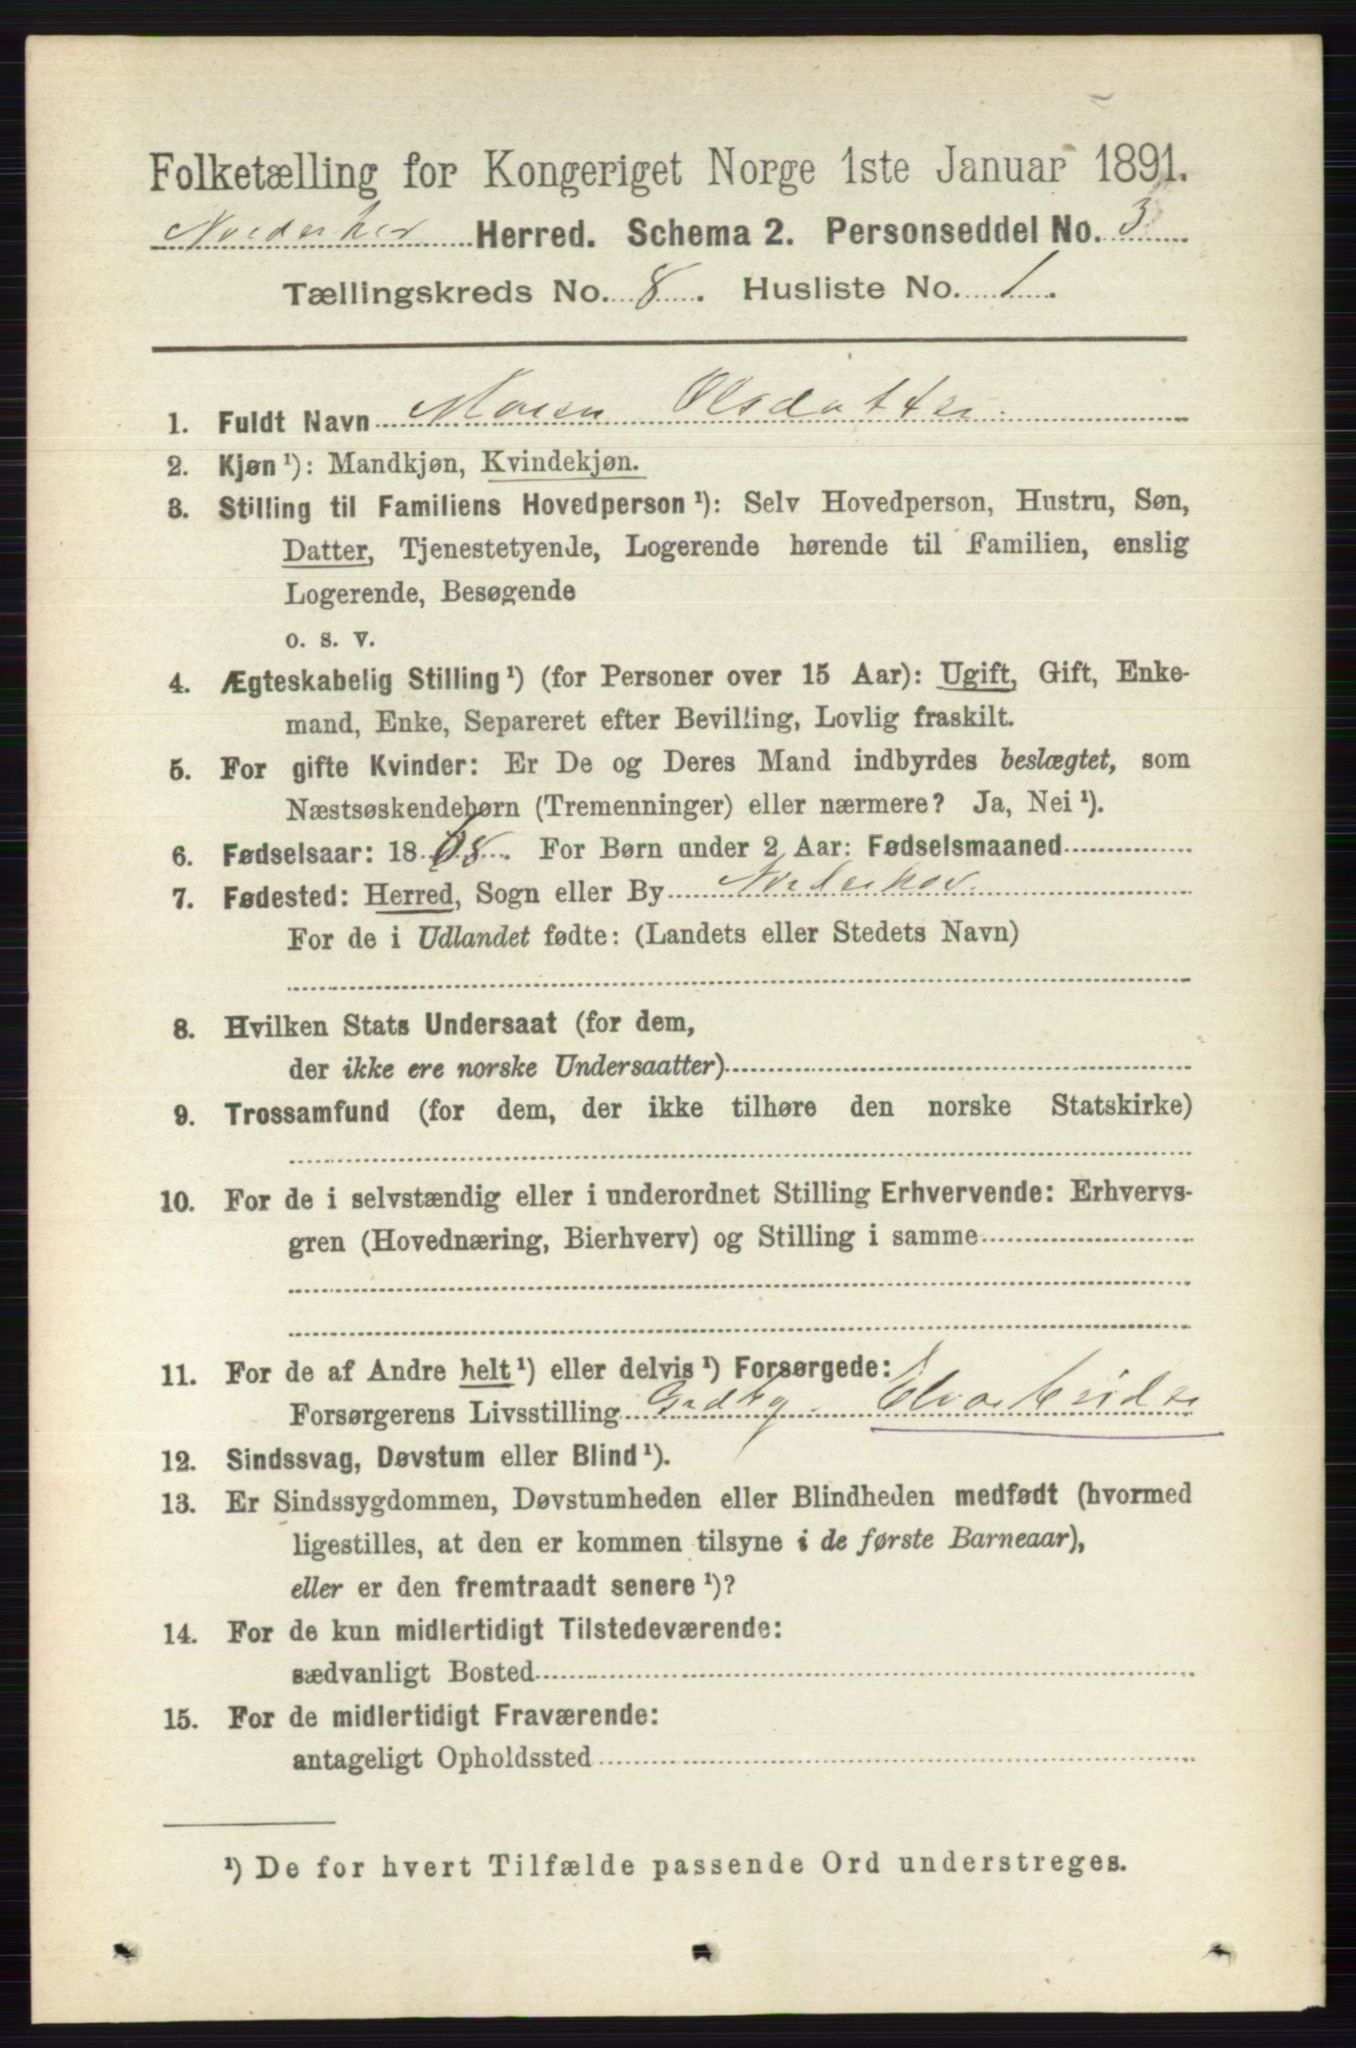 Folketælling for Kongeriget Norge 1ste Januar 1891.
Norderhov Herred. Schema 2. Personseddel No. 3
Tællingskreds No. 8. Husliste No. 1.
1. Fuldt Navn Maren Olsdatter
2. Kjøn¹): Mandkjøn, Kvindekjøn.
3. Stilling til Familiens Hovedperson¹): Selv Hovedperson, Hustru, Søn,
Datter, Tjenestetyende, Logerende hørende til Familien, enslig
Logerende, Besøgende
o. s. v.
4. Ægteskabelig Stilling¹) (for Personer over 15 Aar): Ugift, Gift, Enke-
mand, Enke, Separeret efter Bevilling, Lovlig fraskilt.
5. For gifte Kvinder: Er De og Deres Mand indbyrdes beslægtet, som
Næstsøskendebørn (Tremenninger) eller nærmere? Ja, Nei¹).
6. Fødselsaar: 1868. For Børn under 2 Aar: Fødselsmaaned
7. Fødested: Herred, Sogn eller By Norderhov
For de i Udlandet fødte: (Landets eller Stedets Navn)
8. Hvilken Stats Undersaat (for dem,
der ikke ere norske Undersaatter)
9. Trossamfund (for dem, der ikke tilhøre den norske Statskirke)
10. For de i selvstændig eller i underordnet Stilling Erhvervende: Erhvervs-
gren (Hovednæring, Bierhverv) og Stilling i samme
11. For de af Andre helt¹) eller delvis¹) Forsørgede:
Forsørgerens Livsstilling
12. Sindssvag, Døvstum eller Blind¹).
13. Er Sindssygdommen, Døvstumheden eller Blindheden medfødt (hvormed
ligestilles, at den er kommen tilsyne i de første Barneaar),
eller er den fremtraadt senere¹)?
14. For de kun midlertidigt Tilstedeværende:
sædvanligt Bosted
15. For de midlertidigt Fraværende:
antageligt Opholdssted
¹) De for hvert Tilfælde passende Ord understreges.